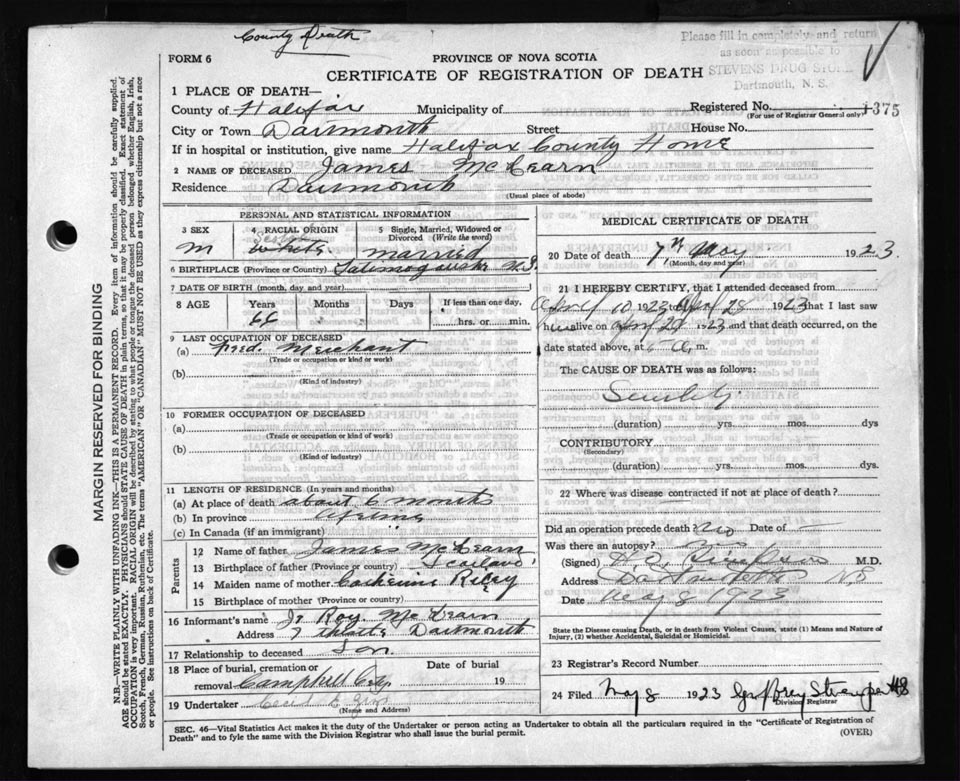 County Death
Please fill in completely and return
as soon as possible to
STEVENS DRUG STORE
Dartmouth, N. S.
FORM 6
PROVINCE OF NOVA SCOTIA
CERTIFICATE OF REGISTRATION OF DEATH
1 PLACE OF DEATH—
County of Halifax Municipality of Registered No. 1375
(For use of Registrar General only)
City or Town Dartmouth Street House No.
If in hospital or institution, give name Halifax County Home
2 NAME OF DECEASED James McLearn
Residence Dartmouth
(Usual place of abode)
PERSONAL AND STATISTICAL INFORMATION
3 SEX
M
4 RACIAL ORIGIN
Scotch
White
5 Single, Married, Widowed or
Divorced (Write the word)
married
6 BIRTHPLACE (Province or Country) N.S.
7 DATE OF BIRTH (month, day, and year)
8 AGE Years Months Days If less than one day,
66 hrs. or min.
9 LAST OCCUPATION OF DECEASED
(a) Merchant
(Trade or occupation or kind of work)
(b)
(Kind of industry)
10 FORMER OCCUPATION OF DECEASED
(a)
(Trade or occupation or kind or work)
(b)
(Kind of industry)
11 LENGTH OF RESIDENCE (In years and months)
(a) At place of death about 6 months
(b) In province
(c) In Canada (if an immigrant)
Parents
12 Name of father James McLearn
13 Birthplace of father (Province or country) Scotland
14 Maiden name of mother Catherine Riley
15 Birthplace of mother (Province or country)
16 Informant's name Roy McLearn
Address 7 Dartmouth
17 Relationship to deceased Son
18 Place of burial, cremation or Date of burial
removal Campbell 19
19 Undertaker
(Name and Address)
MEDICAL CERTIFICATE OF DEATH
20 Date of death 7th May 1923
(Month, day and year)
21 I HEREBY CERTIFY, that I attended deceased from
April 10 1923 to April 28 1923 that I last saw
him alive on April 29 1923 and that death occurred, on
date stated above, at 5 a m.
The CAUSE OF DEATH was as follows:
Senility
(duration) yrs. mos. dys
CONTRIBUTORY
(Secondary)
(duration) yrs. mos. dys
22 Where was disease contracted if not at place of death?
Did an operation precede death? no Date of —
Was there an autopsy? no
(Signed) M.D.
Address Dartmouth NS
Date May 8 1923
State the Disease causing Death, or in death from Violent Causes, state (1) Means and Nature of
Injury, (2) whether Accidental, Suicidal or Homicidal.
23 Registrar's Record Number
24 Filed May 8 1923
Division Registrar
SEC. 46—Vital Statistics Act makes it the duty of the Undertaker or person acting as Undertaker to obtain all the particulars required in the "Certificate of Registration of
Death" and to fyle the same with the Division Registrar who shall issue the burial permit.
(OVER)
MARGIN RESERVED FOR BINDING
N.B.—WRITE PLAINLY WITH UNFADING INK—THIS IS A PERMANENT RECORD. Every item of information should be carefully supplied.
AGE should be stated EXACTLY. PHYSICIANS should STATE CAUSE OF DEATH in plain terms, so that it may be properly classified. Exact statement of
OCCUPATION is very important. RACIAL ORIGIN will be described by stating to what people or tongue the deceased person belonged whether English, Irish,
Scotch, French, German, Russian, Ruthenian, etc. The terms "AMERICAN" or "CANADIAN" MUST NOT BE USED as they express citizenship but not a race
or people. See instructions on back of Certificate.